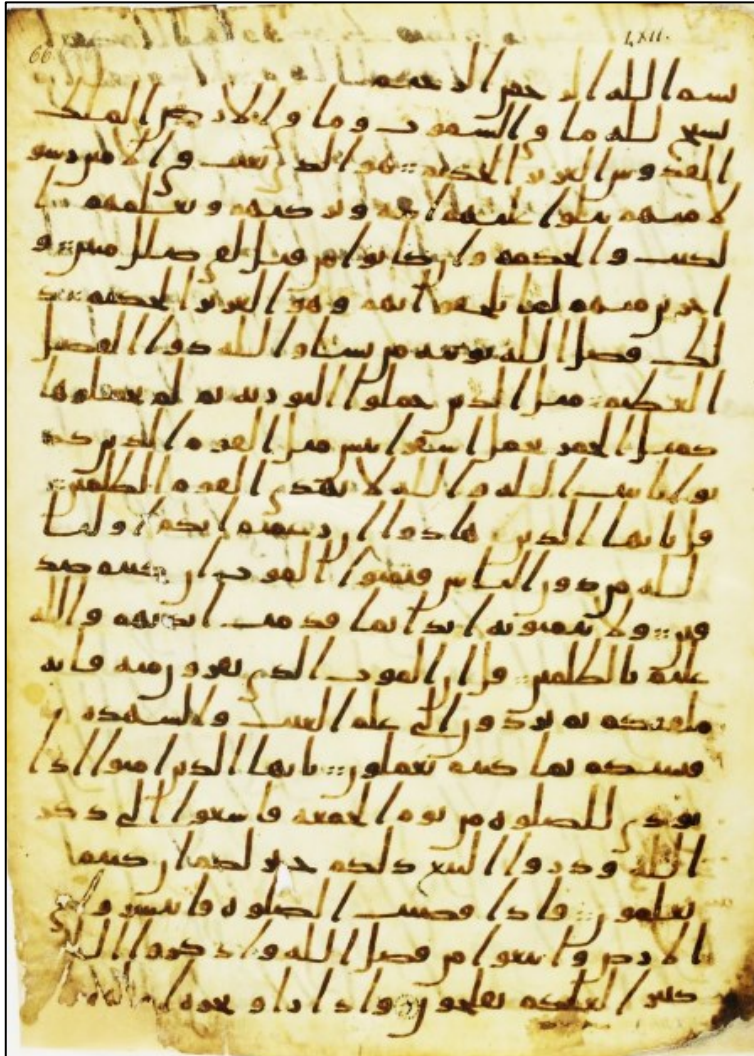 66 LXII.
بسم الله الرحمن الرحيم
يسبح لله ما في السموت وما في الارض الملك
القدوس العزيز الحكيم :: هو الذي بعث في الامين رسو
لا منهم يتلوا عليهم ايته ويزكيهم ويعلمهم ا
لكتب والحكمه وان كانوا من قبل لفي ضلل مبين :: و
اخرين منهم لما يلحقوا بهم وهو العزيز الحكيم :: ذ
لك فضل الله يوتيه من يشا والله ذوا الفضل
العظيم :: مثل الذين حملوا التوريه ثم لم يحملوها
كمثل الحمر يحمل اسفرا بيس مثل القوم الذين كذ
بوا بايت الله والله لا يهدي القوم الظلمين ::
قل يايها الذين هادوا ان زعمتم انكم اوليا
لله من دون الناس فتمنوا الموت ان كنتم صد
قين :: ولا يتمنونه ابدا بما قدمت ايديهم والله
عليم بالظلمين :: قل ان الموت الذي تفرون منه فانه
ملقيكم ثم تردون الى علم الغيب والشهده
فينبيكم بما كنتم تعملون :: يايها الذين امنوا اذا
نودي للصلوه من يوم الجمعه فاسعوا الى ذكر
الله وذروا البيع ذلكم خير لكم ان كنتم
تعلمون :: فاذا قضيت الصلوه فانتشروا
الارض وابتغوا من فضل الله واذكروا الله
كثيرا لعلكم تفلحون واذا راو تجره ا